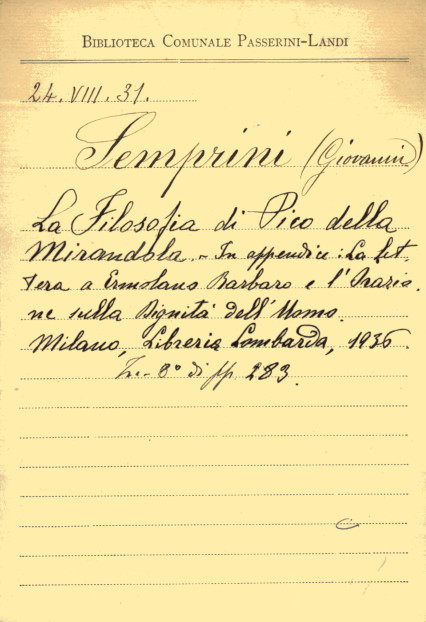 BIBLIOTECA COMUNALE PASSERINI-LANDI
24.VIII.31.
Semprini (Giovanni)
La Filosofia di Pico della
Mirandola. - In appendice: La let
tera a Ermolaus Barbaro e l'Orazio.
ne sulla Dignità dell'Uomo.
Milano, Libreria Lombarda, 1936.
In-8° di pp. 283.